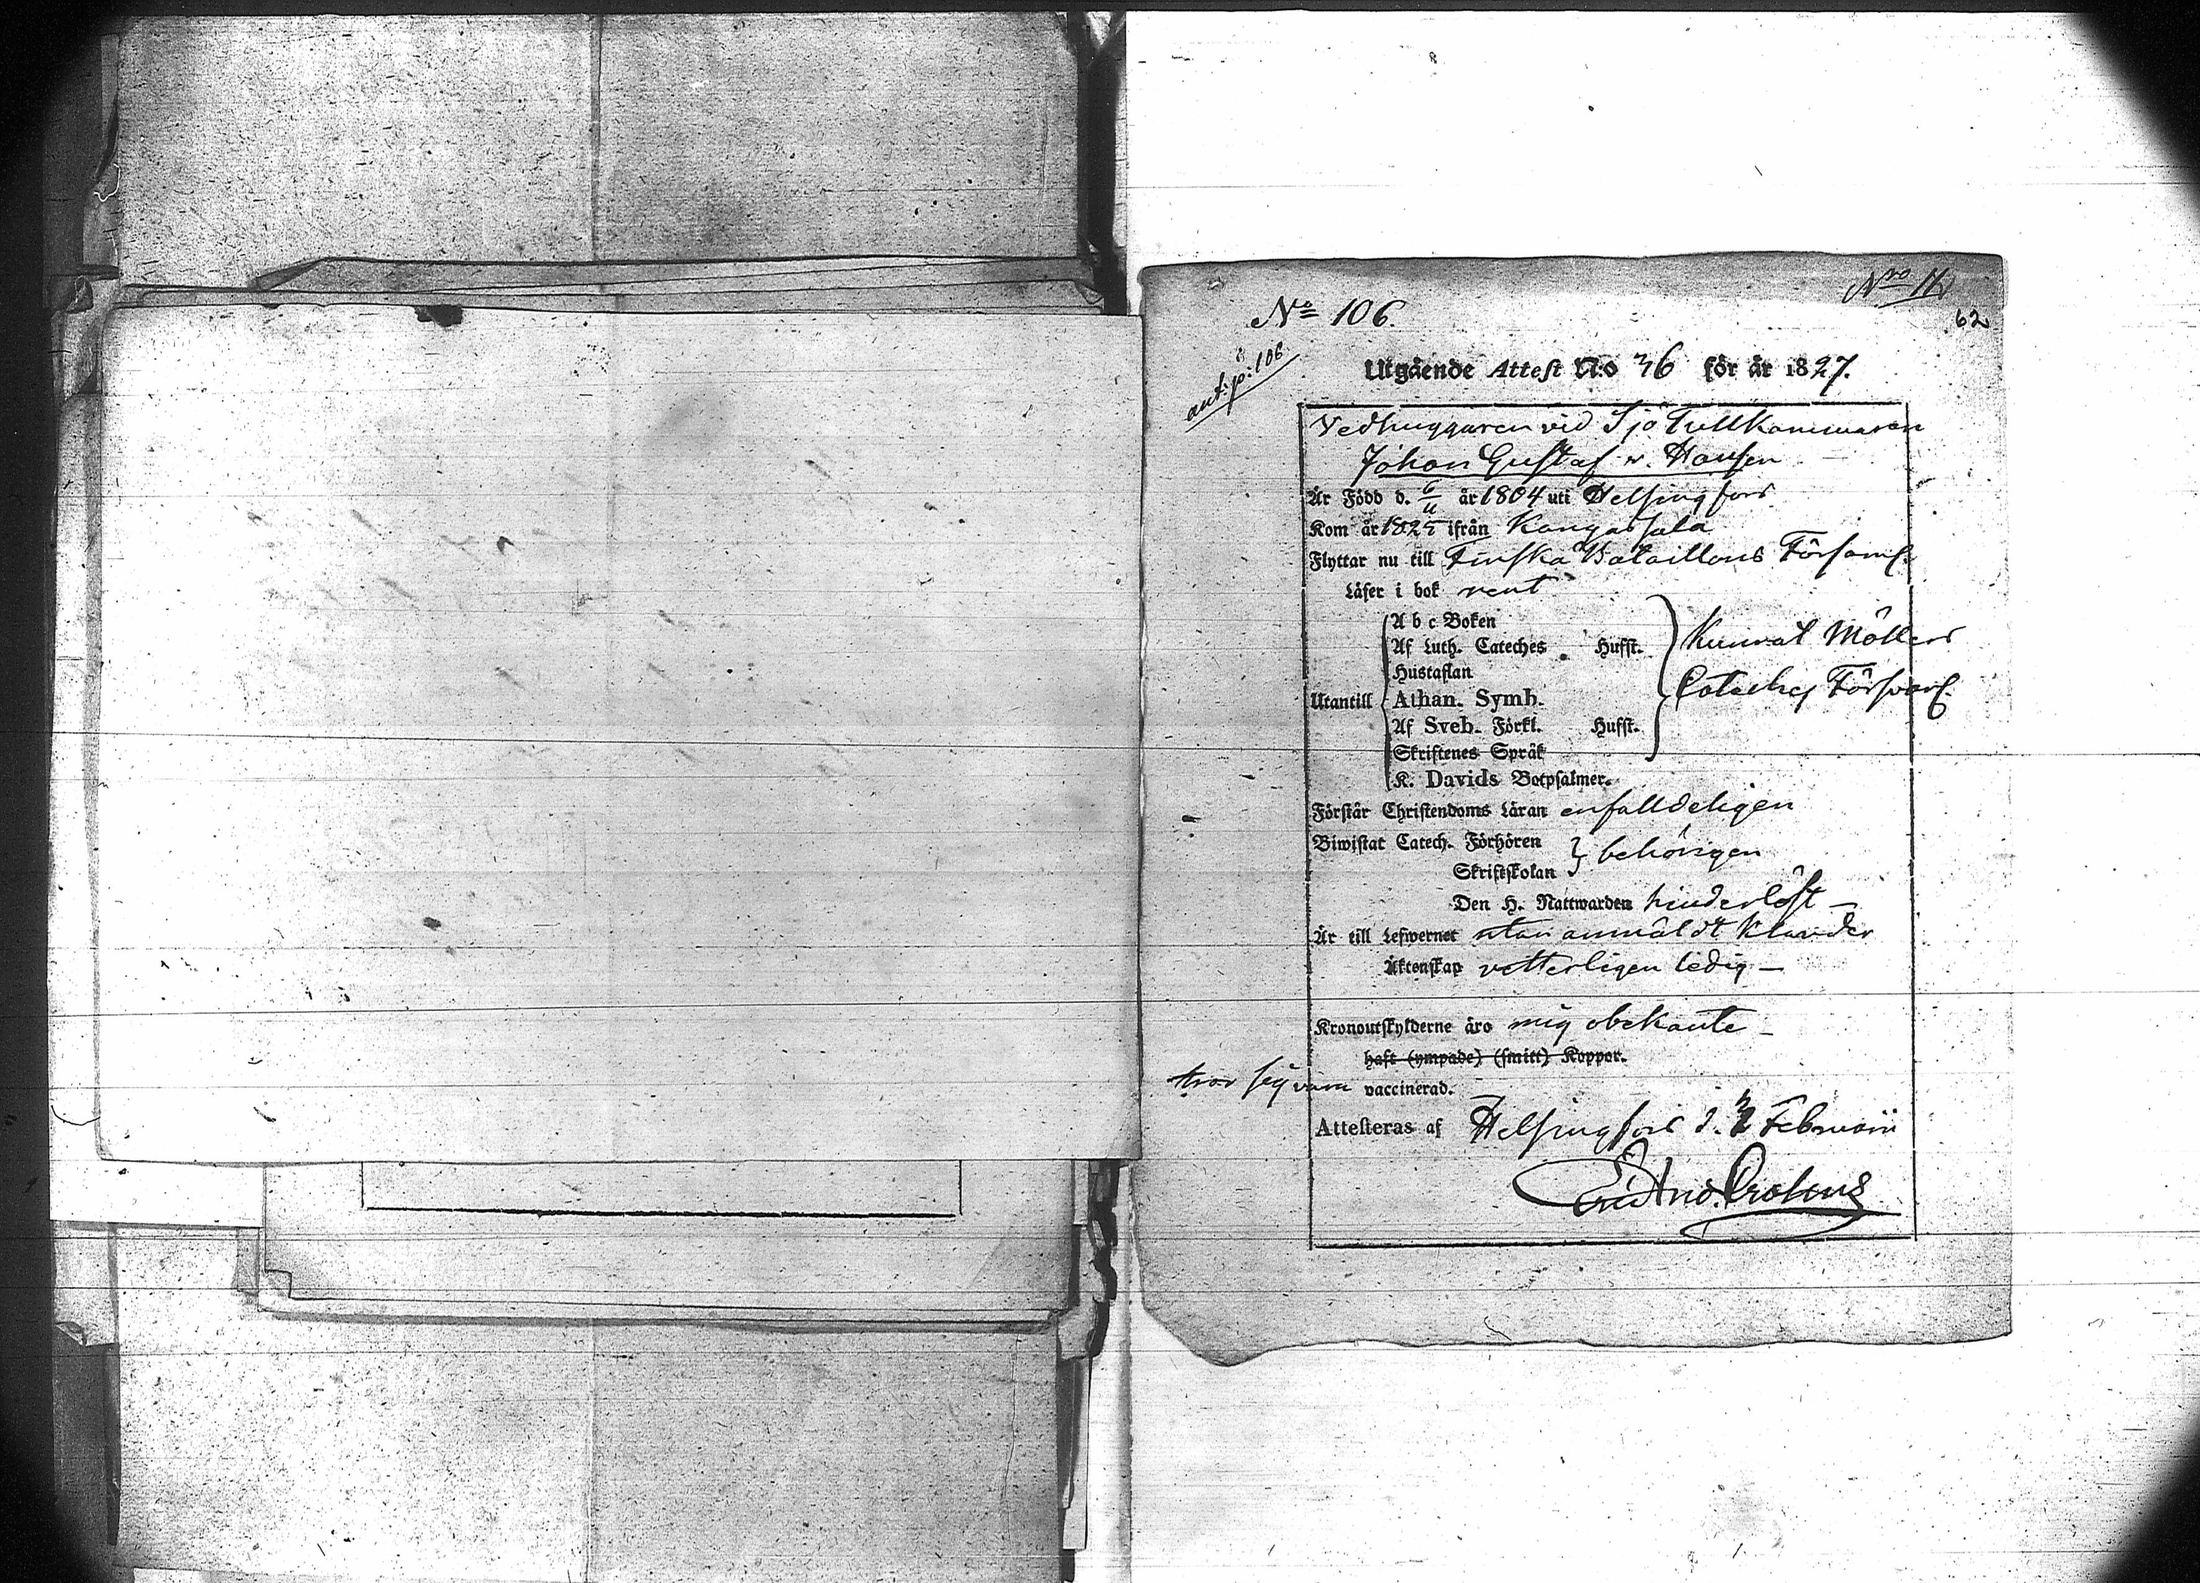 N:o 106.
N:ro
62
ant: p: 106
Utgående Attest N:o 36 för år 1827.
Vedhuggaren vid Sjö Tullkammaren
Johan Gustaf v. Hausen
Är Född d. 6/11 år 1804 uti Helsingfors
Kom år 1825 ifrån Kangasala
Flyttar nu till Finska Bataillons Församl.
Läser i bok rent
A b c Boken
Af Luth. Cateches Hufst.
Hustaflan
Utantill Athan. Symb.
Af Sveb. Förkl. Hufst.
Skriftenes Språk
K. Davids Botpsalmer.
Kunnat Möllers
Cateches Försvarl.
Förstår Christendoms Läran enfalldeligen
Biwistat Catech. Förhören
Skriftskolan behörigen
Den H. Nattwarden hinderlöst –
Är till Lefwernet utan anmäldt klander
Äktenskap vetterligen ledig –
Kronoutskylderne äro mig obekante –
haft (ympade) (smitt) Koppor.
tror sig vara vaccinerad.
Attesteras af Helsingfors d. Februarii